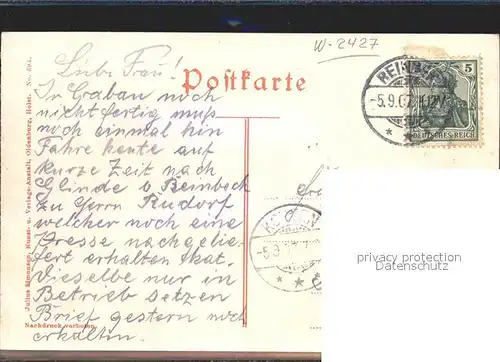 W-2427
Liebe Frau!
Postkarte
In Grabau noch
nicht fertig muß
noch einmal hin
Fahre heute auf
kurze Zeit nach
Glinde b. Reinbeck
zu Herrn Rudorf
welcher noch eine
Presse nachgelie-
fert erhalten hat.
Dieselbe nur in
Betrieb setzen
Brief gestern noch
erhalten.
5
-5.9.07.
DEUTSCHES REICH
-5.9.
privacy protection
Datenschutz
Julius Kunst- u. Verlags-Anstalt, Oldenburg, Holst. No.
Nachdruck verboten.